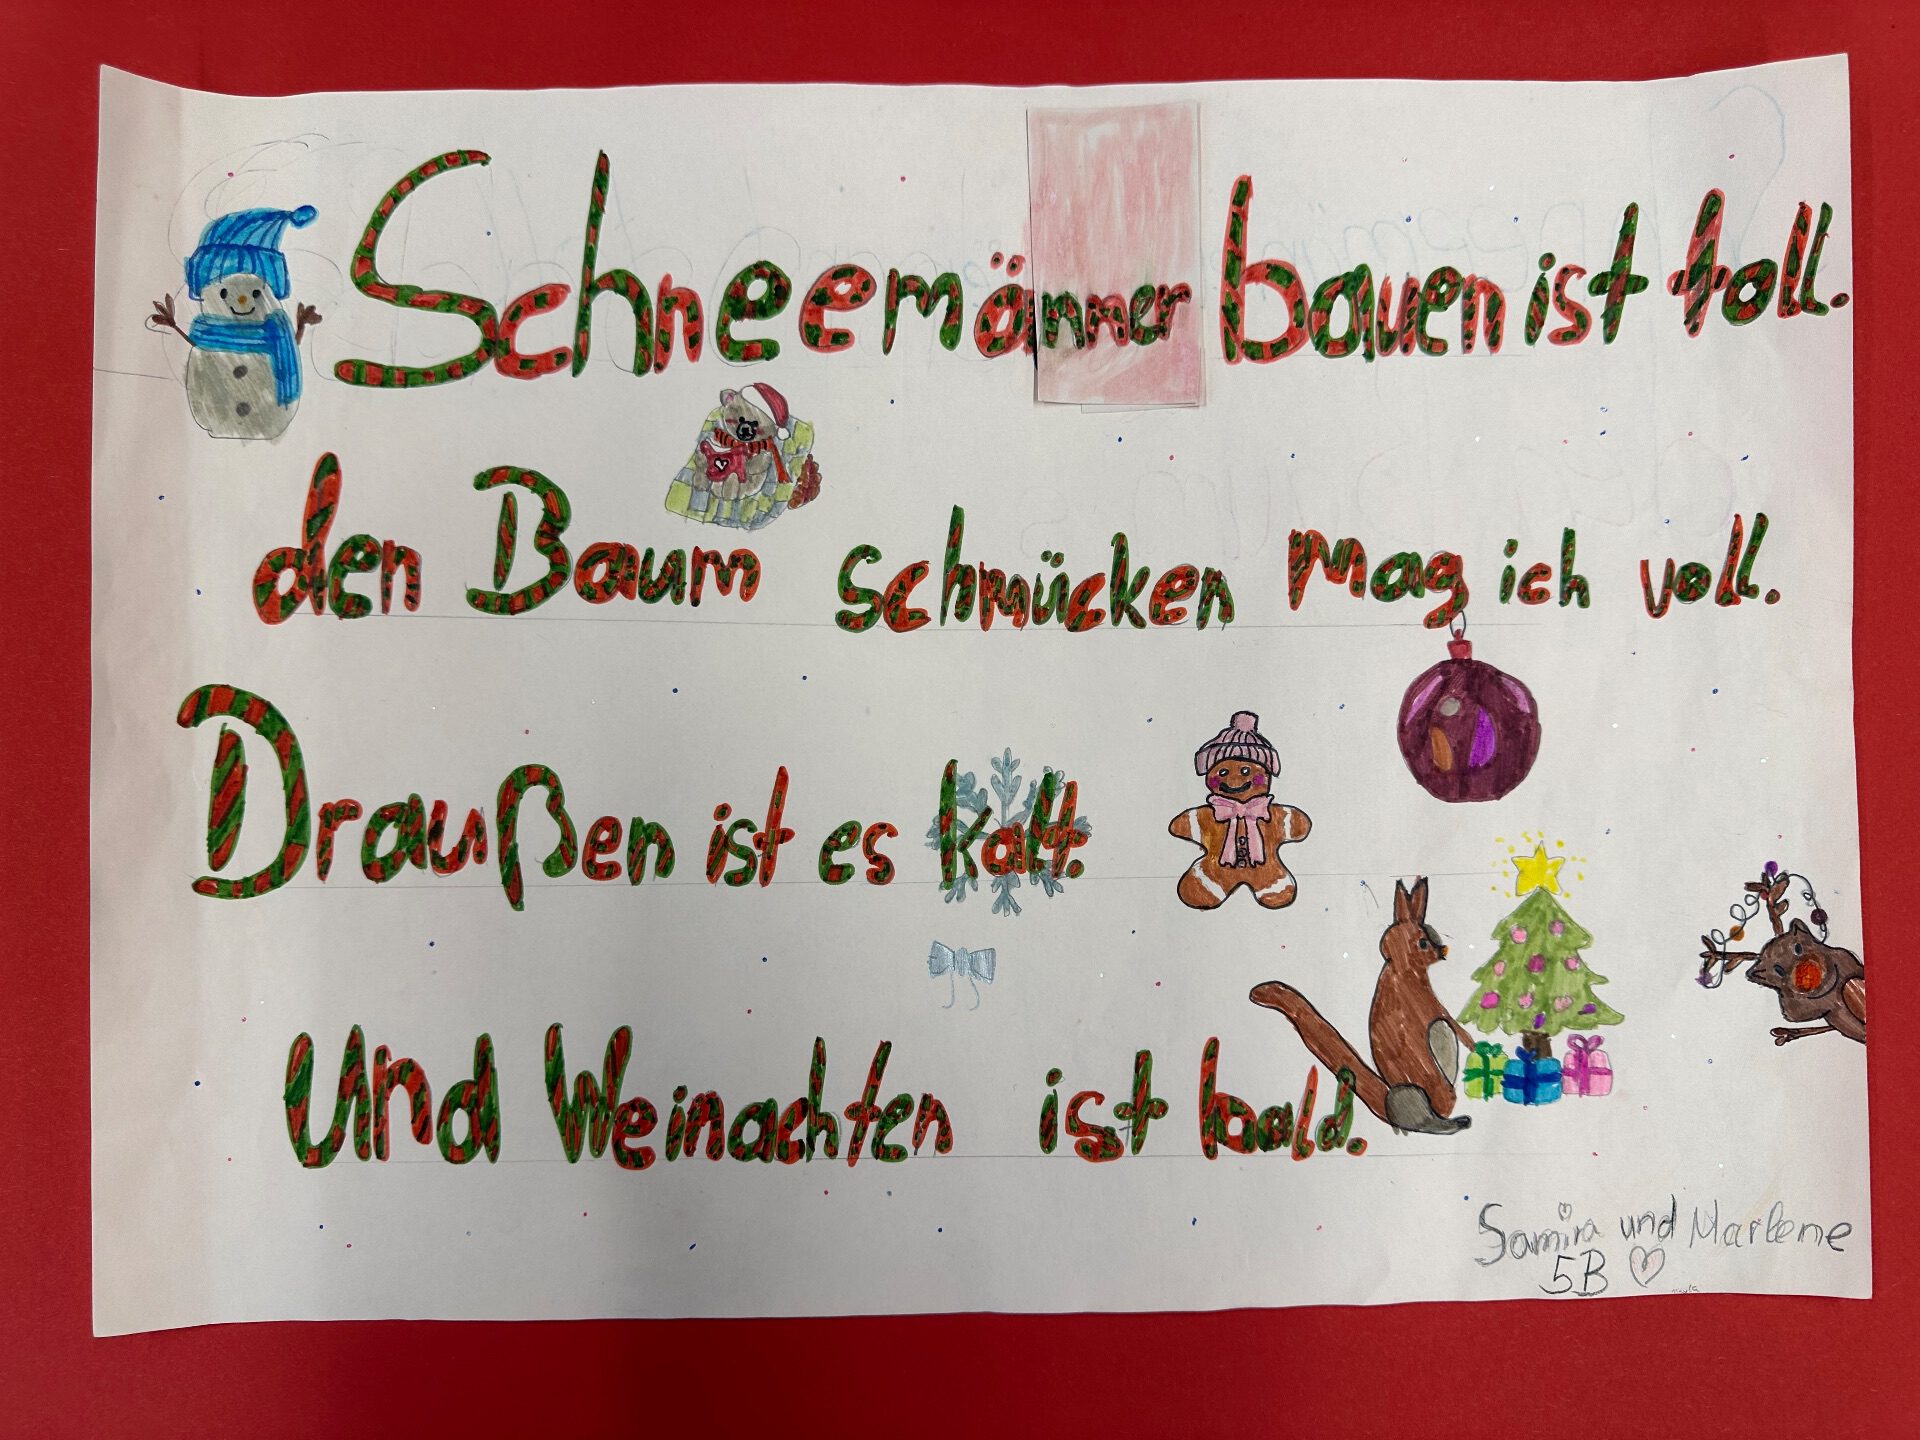 Schneemänner bauen ist toll.
den Baum schmücken mag ich voll.
Draußen ist es kalt.
Und Weinachten ist bald.
Samira und Marlene
5B